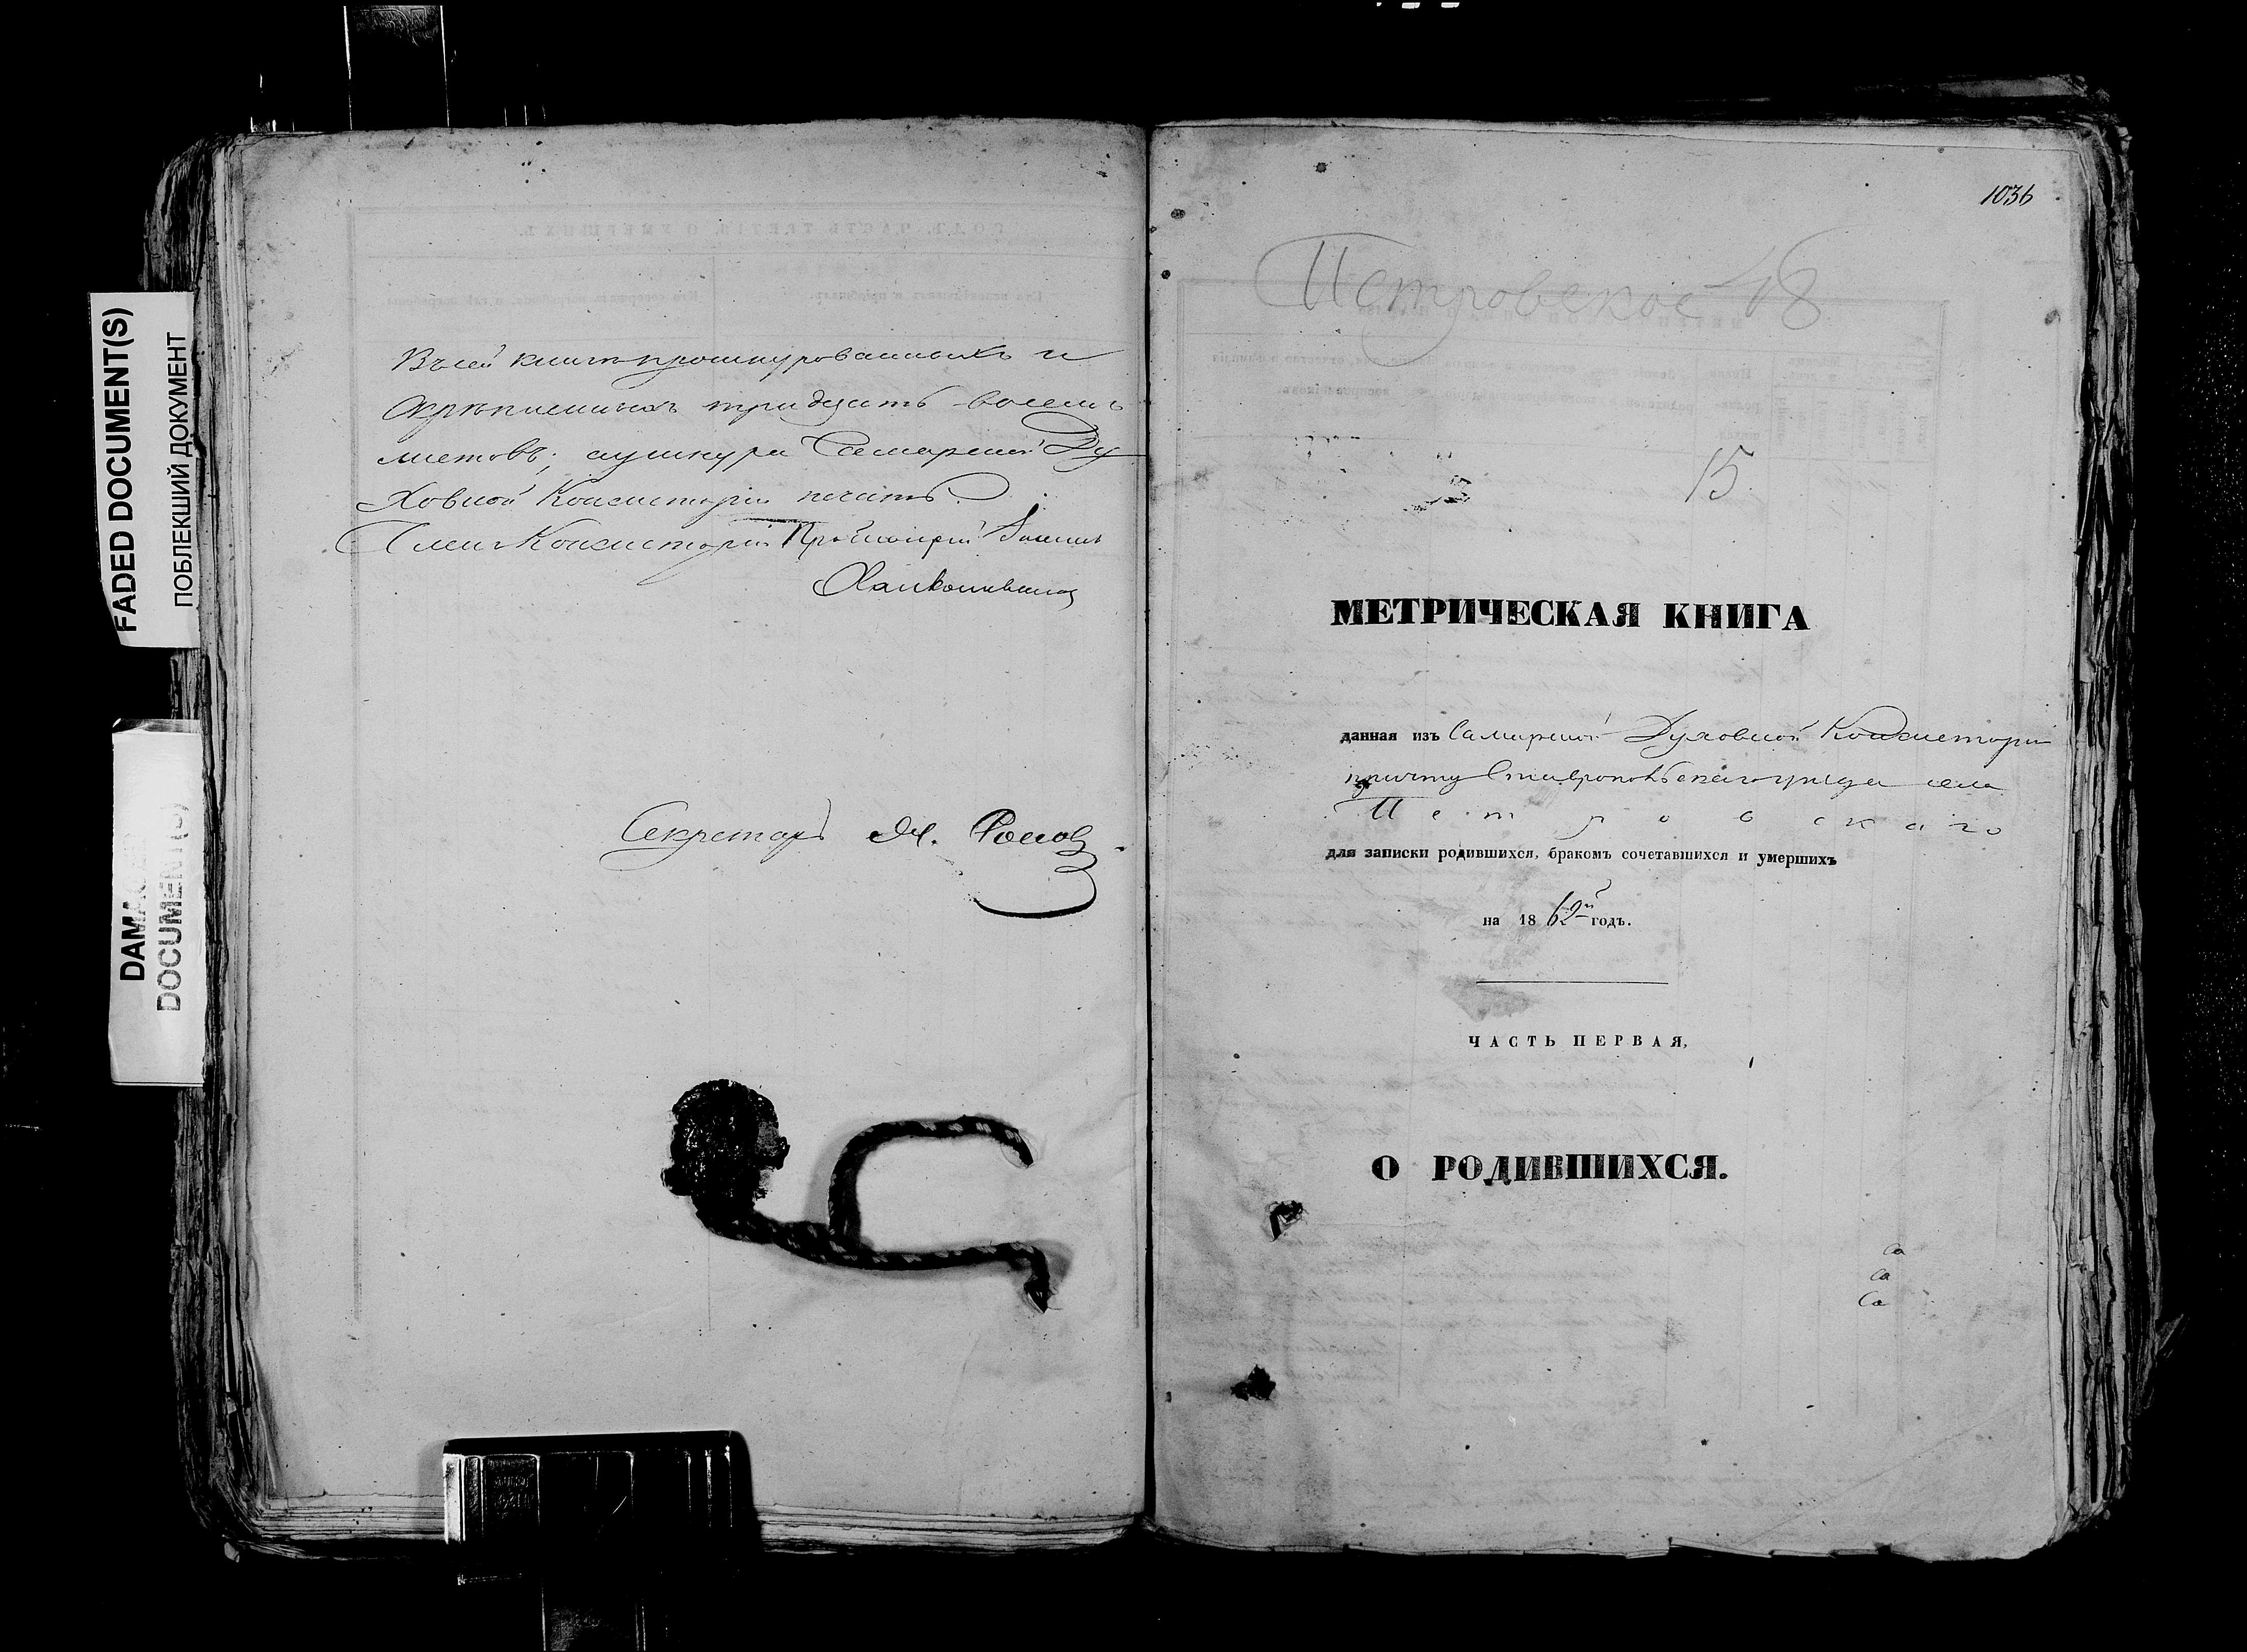 FADED DOCUMENT(S)
ПОБЛЕКШИЙ ДОКУМЕНТ
DOCUMENT(S)
Въ сей книге прошнурованныхъ и
скрѣпленныхъ тридцать восемь
листовъ, а у шнура Самарской Ду
ховной Консисторіи печать.
Членъ Консисторіи Протоіерей Іоаннъ
Секретарь
1036
Петровское 48
15
МЕТРИЧЕСКАЯ КНИГА
данная изъ Самарской Духовной Консисторіи
причту Ставропольскаго уѣзда села
Петровскаго
для записки родившихся, бракомъ сочетавшихся и умершихъ
на 1862й годъ.
ЧАСТЬ ПЕРВАЯ,
О РОДИВШИХСЯ.
Са
Са
Са